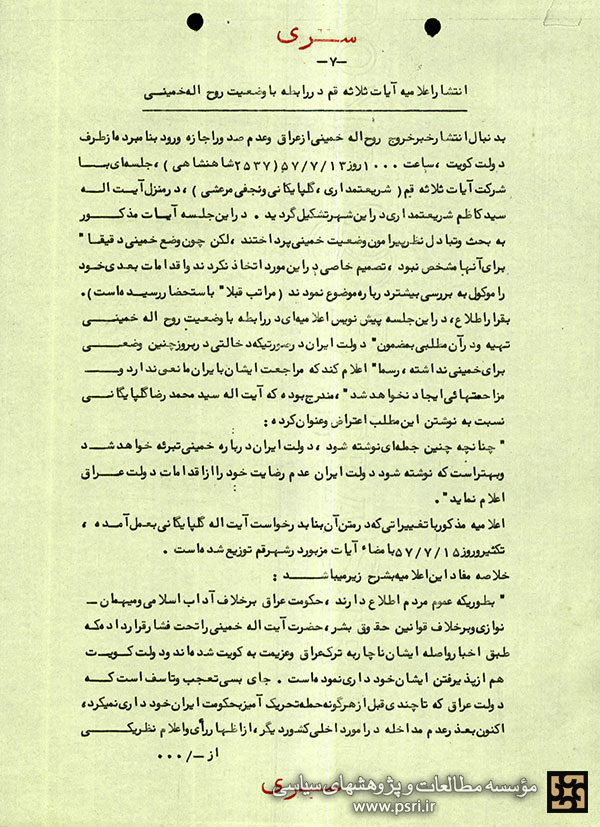 سری
-۷-
انتشار اعلامیه آیات ثلاثه قم در رابطه با وضعیت روح اله خمینی
بدنبال انتشار خبر خروج روح اله خمینی از عراق و عدم صدور اجازه ورود بنامبرده از طرف
دولت کویت ، ساعت ۱۰۰۰ روز ۵۷/۷/۱۳ (۲۵۳۷ شاهنشاهی) ، جلسه‌ای با
شرکت آیات ثلاثه قم (شریعتمداری ، گلپایگانی و نجفی مرعشی) ، در منزل آیت اله
سید کاظم شریعتمداری در این شهر تشکیل گردید . در این جلسه آیات مذکور
به بحث و تبادل نظر پیرامون وضعیت خمینی پرداختند ، لکن چون وضع خمینی دقیقا"
برای آنها مشخص نبود ، تصمیم خاصی در این مورد اتخاذ نکردند و اقدامات بعدی خود
را موکول به بررسی بیشتر درباره موضوع نمودند (مراتب قبلا" باستحضار رسیده است) .
بقرار اطلاع ، در این جلسه پیش نویس اعلامیه‌ای در رابطه با وضعیت روح اله خمینی
تهیه و در آن مطلبی بمضمون " دولت ایران در صورتیکه دخالتی در بروز چنین وضعی
برای خمینی نداشته ، رسما" اعلام کند که مراجعت ایشان بایران مانعی ندارد و
مزاحمتهائی ایجاد نخواهد شد " ، مندرج بوده که آیت اله سید محمد رضا گلپایگانی
نسبت به نوشتن این مطلب اعتراض و عنوان کرده :
" چنانچه چنین جمله‌ای نوشته شود ، دولت ایران درباره خمینی تبرئه خواهد شد
و بهتر است که نوشته شود دولت ایران عدم رضایت خود را از اقدامات دولت عراق
اعلام نماید " .
اعلامیه مذکور با تغییراتی که در متن آن بنا بدرخواست آیت اله گلپایگانی بعمل آمده ،
تکثیر و روز ۵۷/۷/۱۵ با مضاء آیات مزبور در شهر قم توزیع شده است .
خلاصه مفاد این اعلامیه بشرح زیر میباشد :
" بطوریکه عموم مردم اطلاع دارند ، حکومت عراق برخلاف آداب اسلامی و میهمان -
نوازی و برخلاف قوانین حقوق بشر ، حضرت آیت اله خمینی را تحت فشار قرار داده که
طبق اخبار واصله ایشان ناچار به ترک عراق و عزیمت به کویت شده‌اند و دولت کویت
هم از پذیرفتن ایشان خودداری نموده است . جای بسی تعجب و تاسف است که
دولت عراق که تا چندی قبل از هرگونه حمله تحریک آمیز بحکومت ایران خودداری نمیکرد ،
اکنون بعذر عدم مداخله در امور داخلی کشور دیگر ، از اظهار رأی و اعلام نظر یکی
از -/۰۰۰
سری
مؤسسه مطالعات و پژوهشهای سیاسی
www.psri.ir